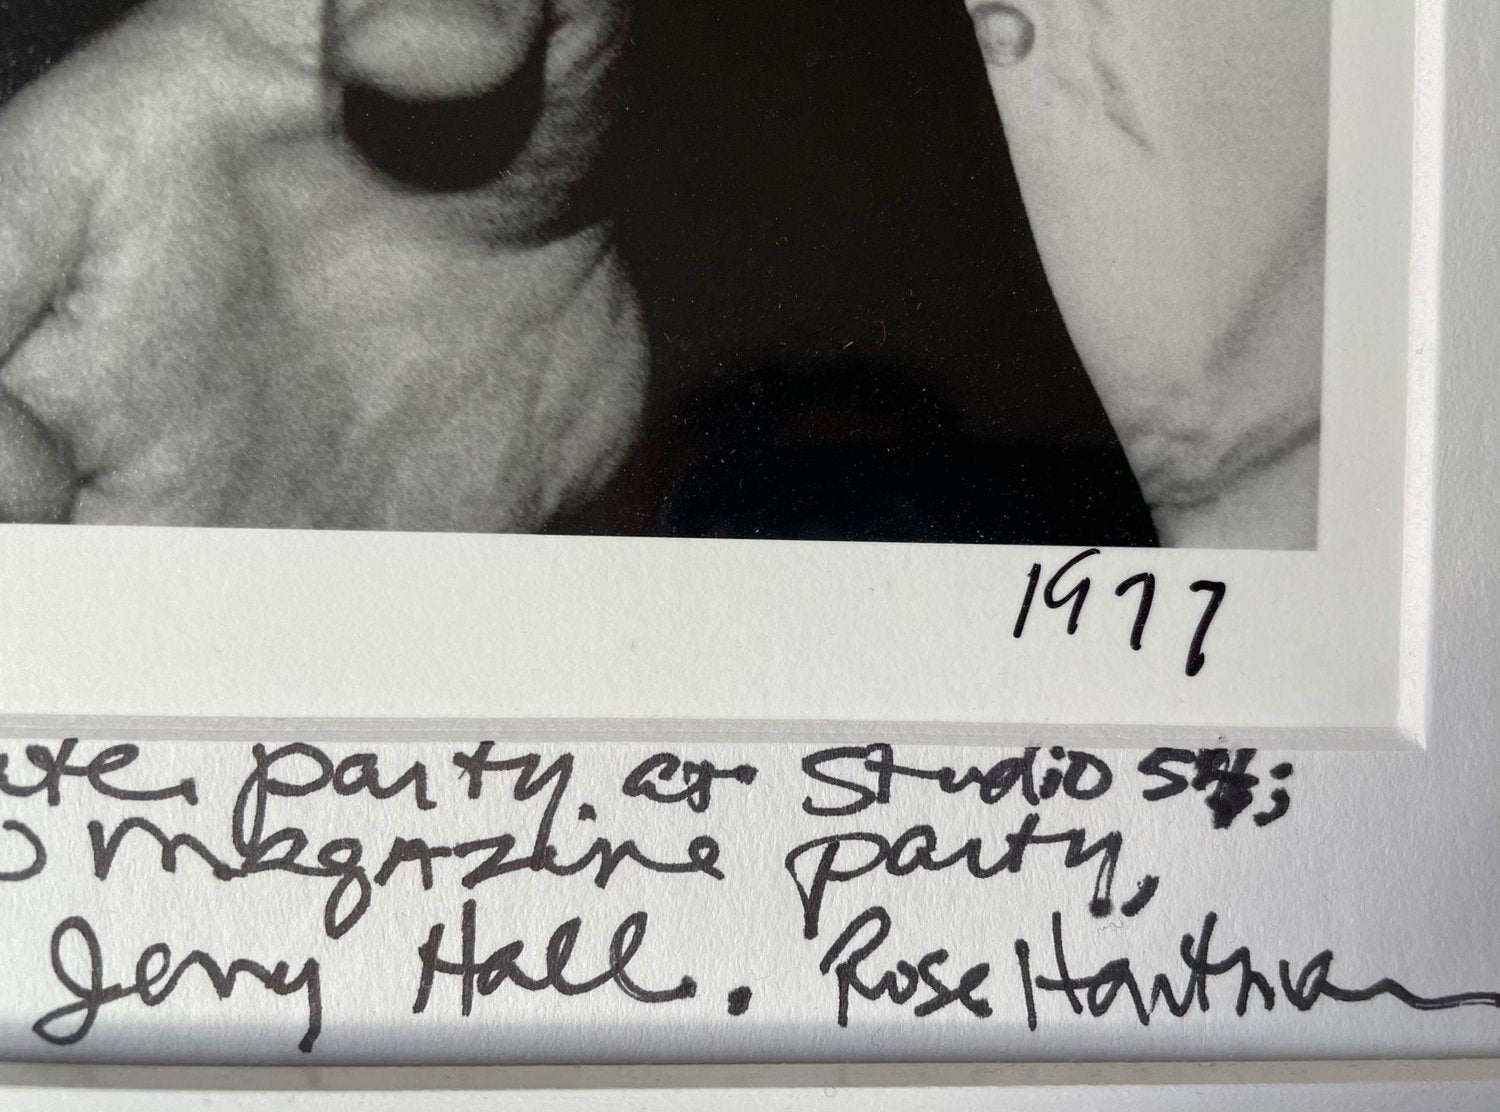 1977
party at Studio 54;
magazine party,
Jerry Hall. Rose Hartman